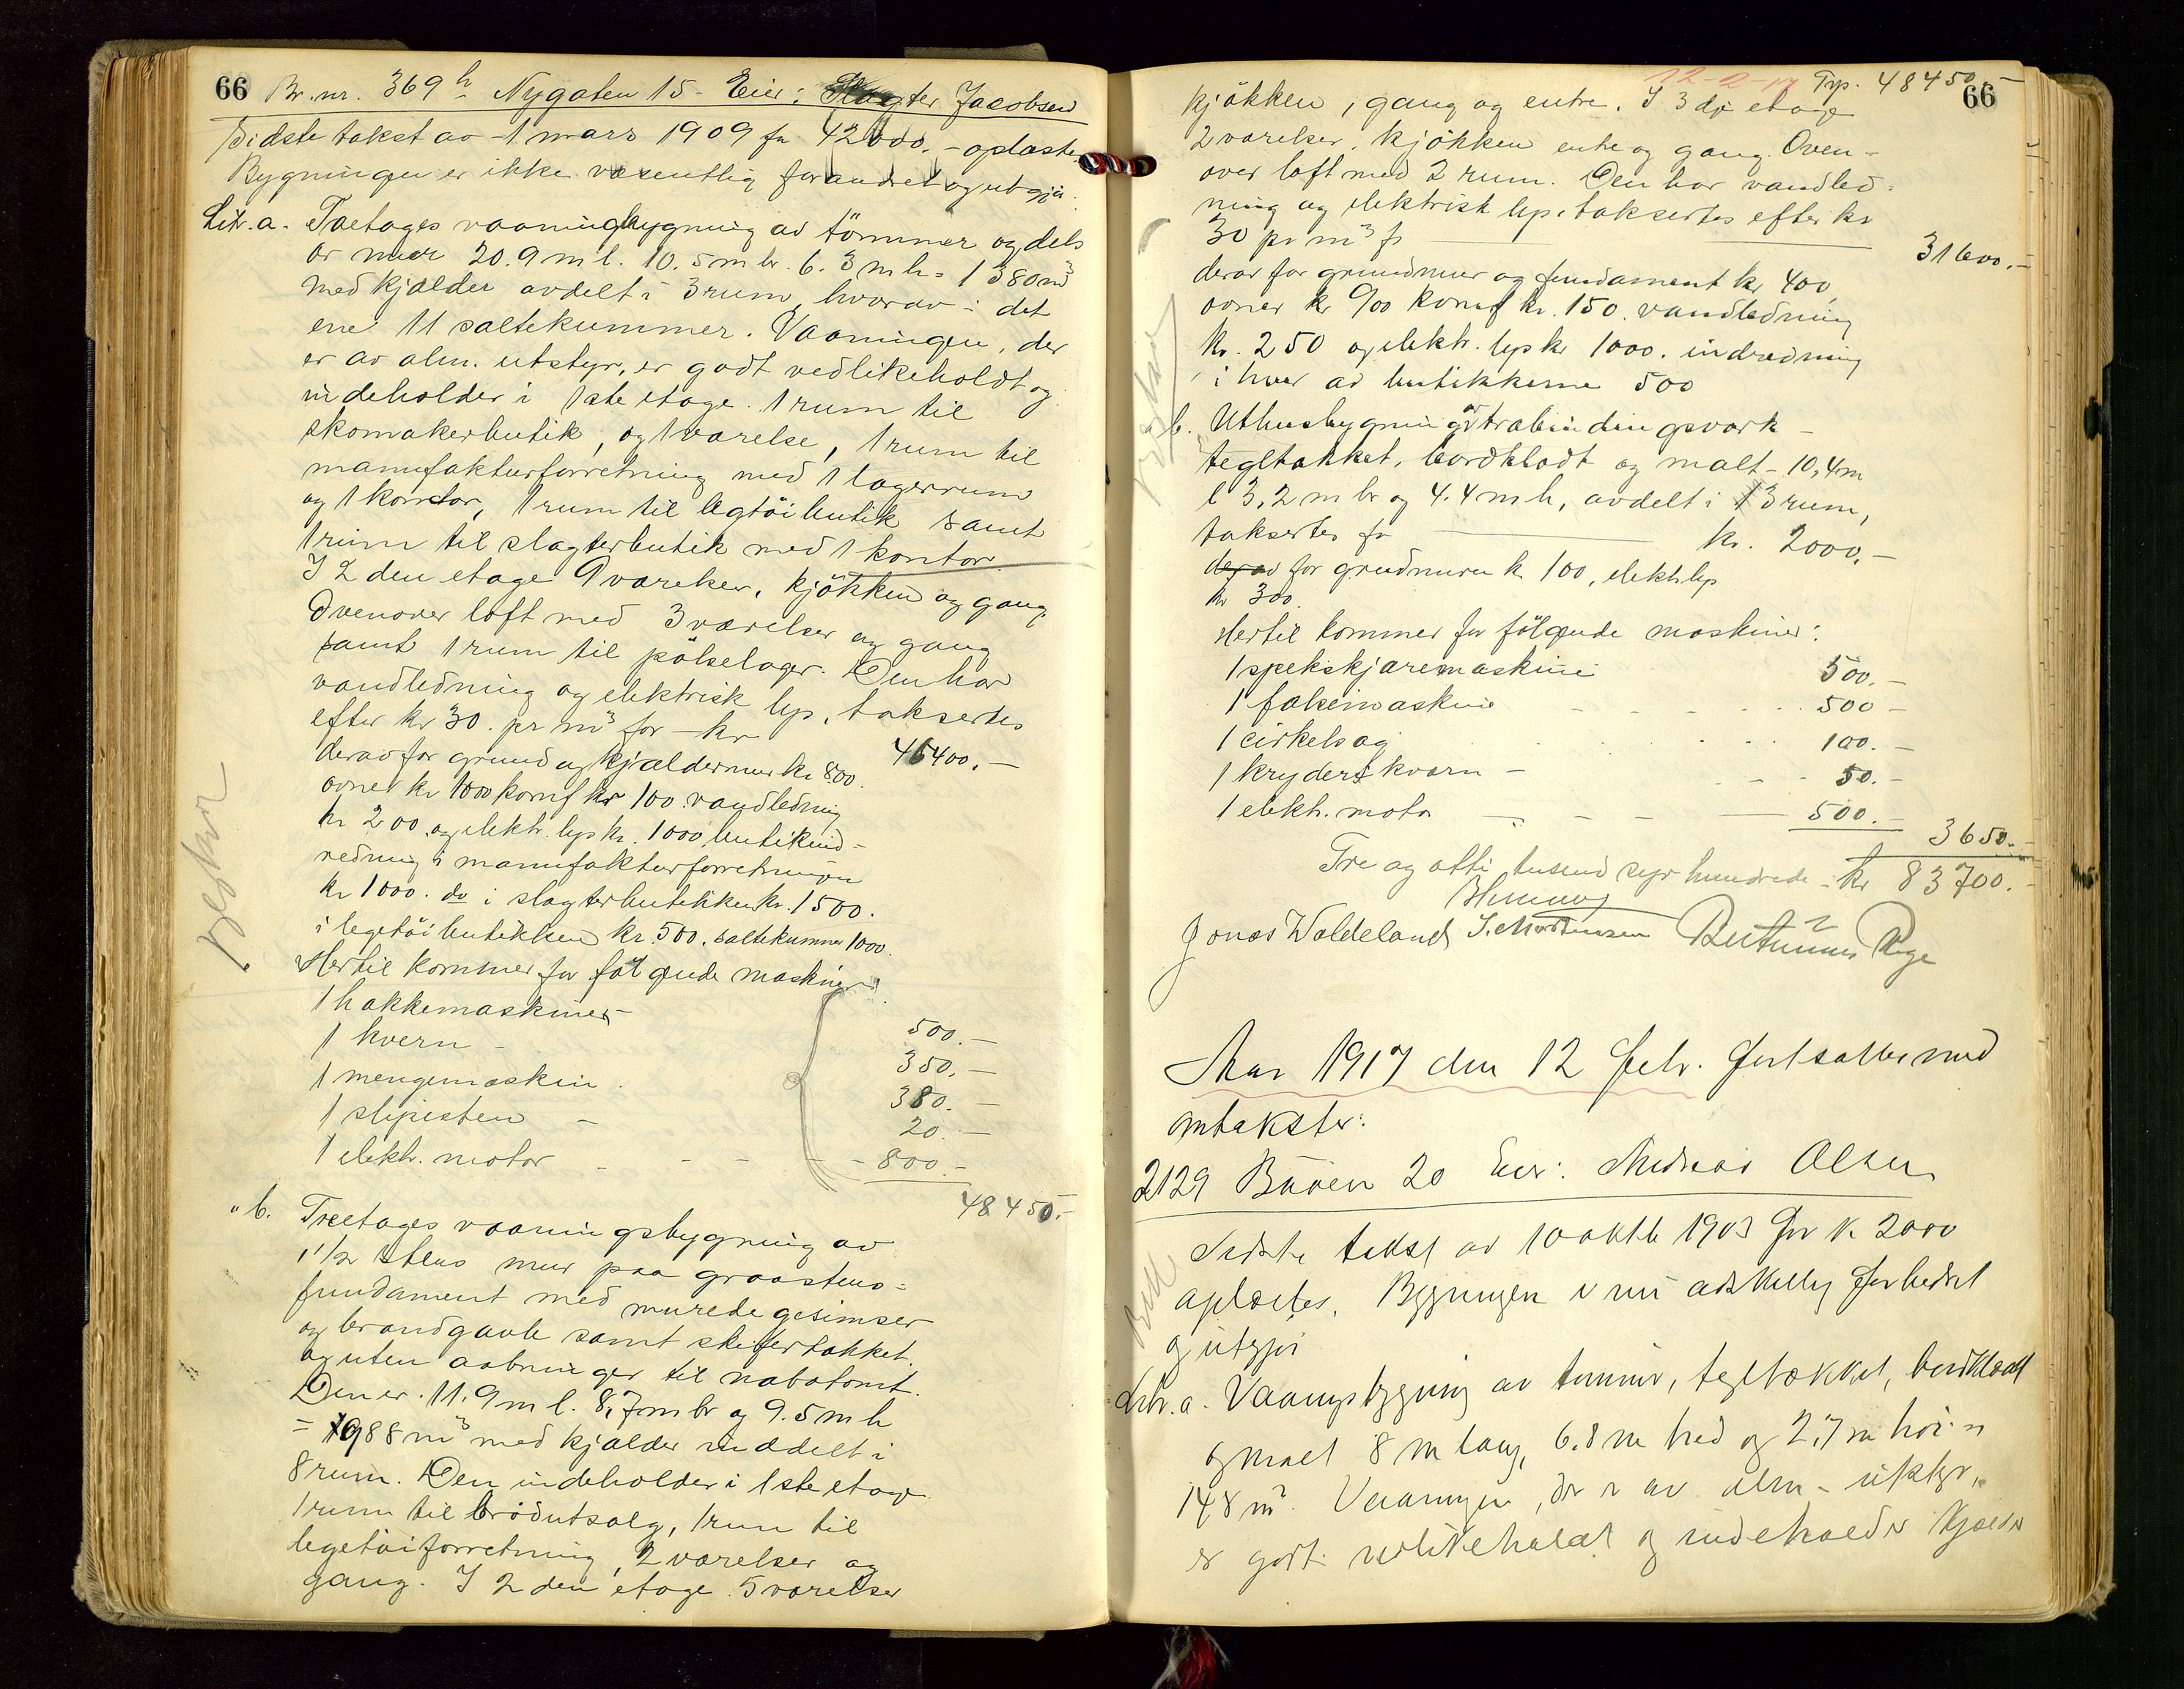 66 Br. nr. 369 h Nygaten 15 - Eier: Slagter Jacobsen
Sidste takst av 1 mars 1909 fr 42000.- oplæstes
Bygningen er ikke væsentlig forandret og utgjør:
Litr. a. Toetages vaaningsbygning av tømmer og dels
av mur 20.9 m l. 10.5 m br. 6.3 m h = 1380 m3
med kjælder avdelt i 3 rum, hvorav i det
ene 11 saltekummer. Vaaningen, der
er av alm. utstyr, er godt vedlikeholdt og
indeholder i 1ste etage 1 rum til
skomakerbutik, og 1 værelse, 1 rum til
manufakturforretning med 1 lagerrum
og 1 kontor, 1 rum til legtöibutik samt
1 rum til slagterbutik med 1 kontor.
I 2 den etage 9 værelser, kjökken og gang
Ovenover loft med 3 værelser og gang
samt 1 rum til pölselager. Den har
vandledning og elektrisk lys, taksertes
efter kr 30. pr m3 for - kr 46400.-
derav for grund og kjældermur kr 800.
ovner kr 1000 komf kr 100 vandledning
kr 200. og elektr. lys kr. 1000, butikind-
redning i manufakturforretningen
kr 1000. do i slagterbutikken kr. 1500.
i legetöibutikken kr. 500. saltekummer 1000.
Hertil kommer for følgende maskiner:
1 hakkemaskiner 500.-
1 kvern - 350.-
1 mengemaskin. 380.-
1 slipesten - 20.-
1 elektr. motor - - - - 800.-
48450.-
" b. Treetages vaaningsbygning av
1 1/2 stens mur paa graastens-
fundament med murede gesimser
og brandgavle samt skifertakket.
og uten aabninger til nabotomt.
Den er 11.9 m l. 8,7 m br og 9.5 m h
= 988 m3 med kjælder inddelt i
8 rum. Den indeholder i 1ste etage
1 rum til brödutsalg, 1 rum til
legetöiforretning, 2 værelser og
gang. I 2 den etage 5 værelser
12-2-17 Trp. 48450.-
66
kjökken, gang og entre. I 3 dje etage
2 værelser, kjökken entre og gang. Oven-
over loft med 2 rum. Den har vandled-
ning og elektrisk lys, taksertes efter kr
30 pr m3 fr 31600.-
derav for grundmur og fundament kr 400,
ovner kr 900 komf kr. 150. vandledning
kr. 250 og elektr. lys kr 1000. indredning
i hver av butikkerne 500
" b. Uthusbygning av træbindingsverk -
tegltakket, bordklædt og malt - 10,4 m
l 3,2 m br og 4.4 m h, avdelt i 3 rum,
taksertes fr kr. 2000.-
derav for grudmuren kr 100, elektr lys
kr 300.
Hertil kommer for følgende maskiner:
1 spekskjæremaskine 500.-
1 falsimaskine - - - 500 -
1 cirkelsag 100.-
1 kryderskværn - - - 50.-
1 elektr. motor - - - 500.-
3650.-
Tre og otti tusend syv hundrede - kr 83700.-
Jonas Waldeland S. Mortensen Rege
Aar 1917 den 12 febr. fortsattes med
omtakster:
2129 Bråten 20 Eier: Andreas Olsen
Sidste takst av 10 oktb 1903 for kr 2000
oplæstes. Bygningen er nu adskillig forbedret
og utgjør
Litr. a. Vaaningsbygning av tømmer, tegltækket, bordklædt
og malt 8 m lang, 6.8 m bred og 2.7 m høi =
148 m3. Vaaningen, der er av alm. utstyr,
er godt vedlikeholdt og indeholder kjælder